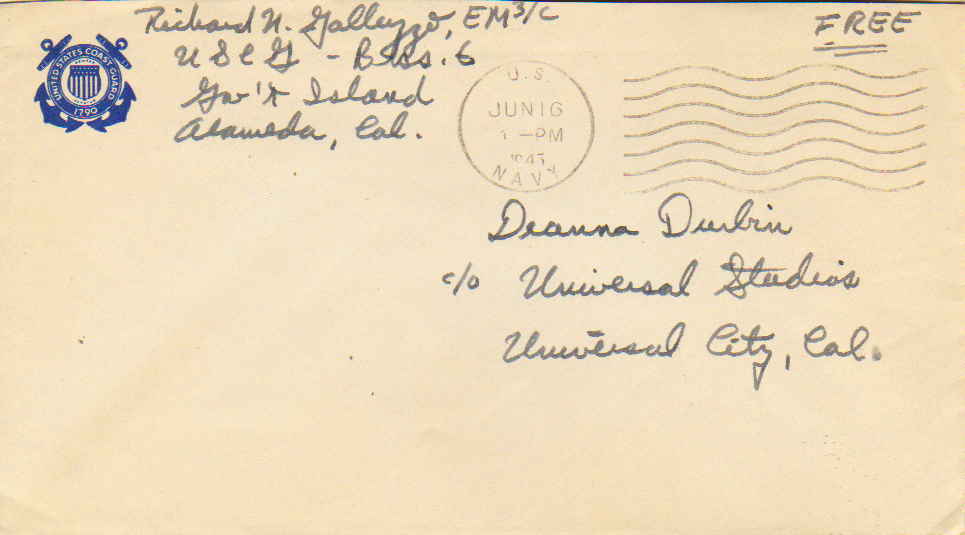 Richard N. Galluzzo, EM 3/c
U S C G - Bks. 6
Gov't Island
Alameda, Cal.
FREE
UNITED STATES COAST GUARD
1790
U.S.
JUN 16
1 -PM
NAVY
Deanna Durbin
c/o Universal Studios
Universal City, Cal.